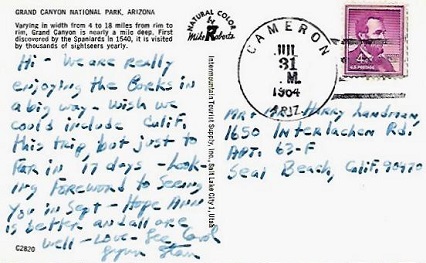 GRAND CANYON NATIONAL PARK, ARIZONA
Varying in width from 4 to 18 miles from rim to
rim, Grand Canyon is nearly a mile deep. First
discovered by the Spaniards in 1540, it is visited
by thousands of sightseers yearly.
Hi - We are really
enjoying the Parks in
a big way - wish we
could include Calif.
this trip but just to
far in 17 days - Look-
ing foreword to seeing
you in Sept - Hope Ann
is better and all are
well - Love -
C2820
NATURAL COLOR
by
Mike Roberts
Intermountain Tourist Supply, Inc., Salt Lake City 1, Utah
CAMERON
31
M.
1964
ARIZ.
4¢
U.S. POSTAGE
Harry Landman,
1650 Interlachen Rd.
APT. 63-F
Seal Beach, Calif. 90470